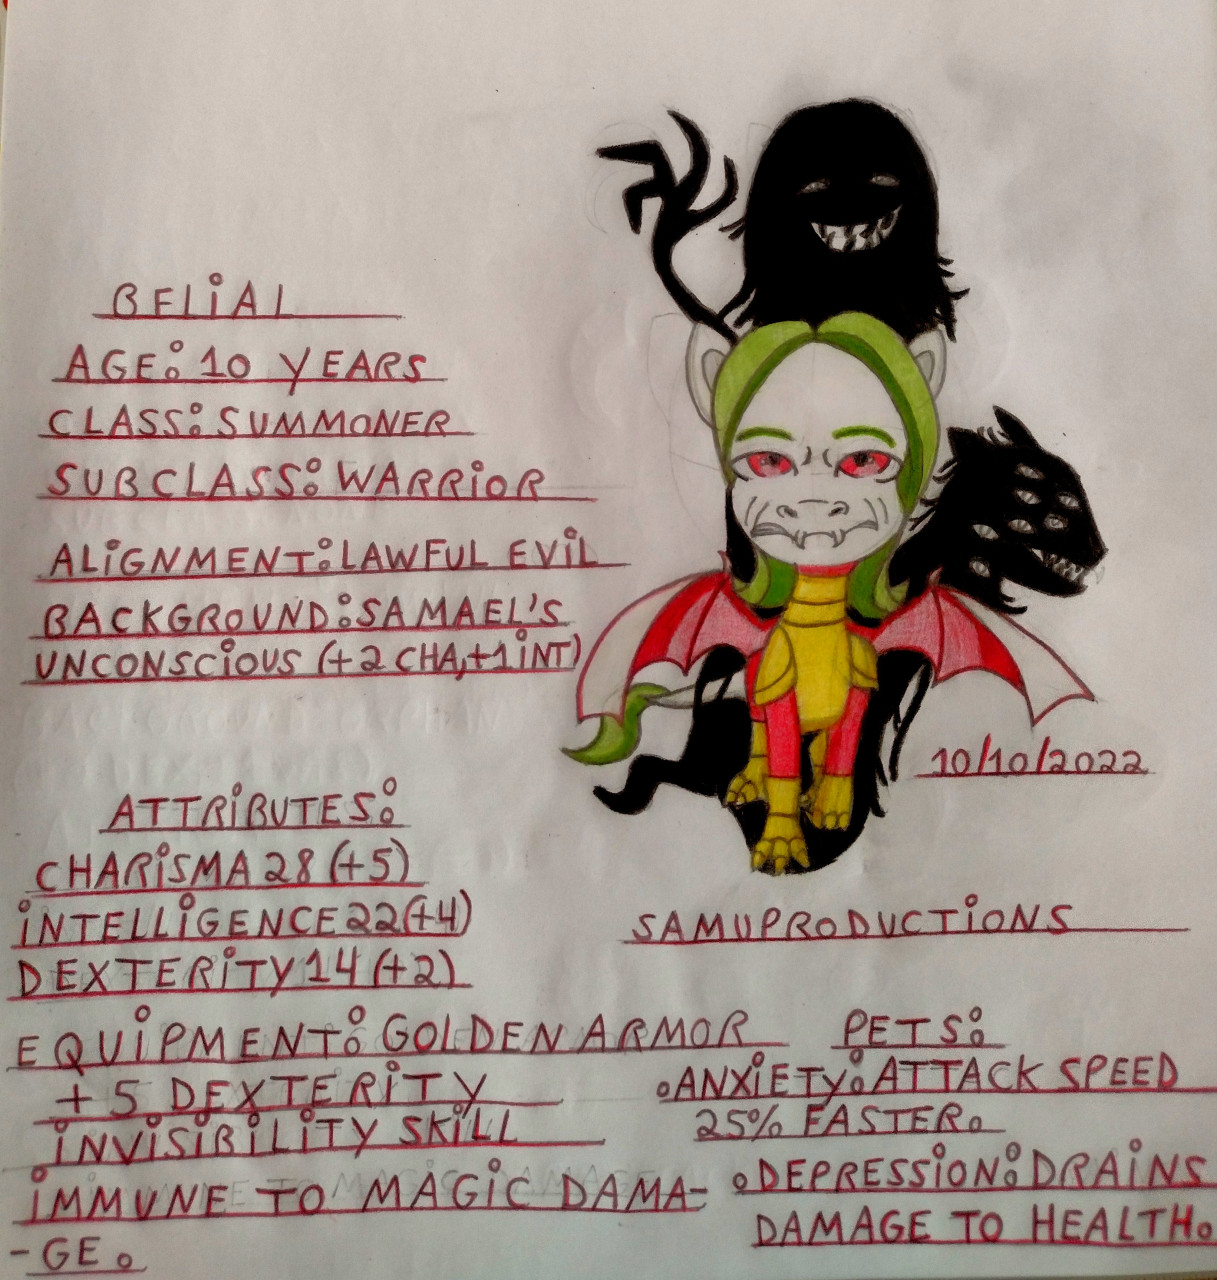 BELiAL
AGE: 10 YEARS
CLASS: SUMMONER
SUBCLASS: WARRiOR
ALiGNMENT: LAWFUL EViL
BACKGROUND: SAMAEL'S
UNCONSCiOUS (+2 CHA,+1 iNT)
10/10/2022
ATTRiBUTES:
CHARiSMA 28 (+5)
iNTELLiGENCE 22 (+4)
DEXTERiTY 14 (+2)
SAMUPRODUCTiONS
EQUiPMENT: GOLDEN ARMOR
+ 5 DEXTERiTY
iNViSiBiLiTY SKiLL
iMMUNE TO MAGiC DAMA-
-GE.
PETS:
•ANXiETY: ATTACK SPEED
25% FASTER.
•DEPRESSiON: DRAiNS
DAMAGE TO HEALTH.